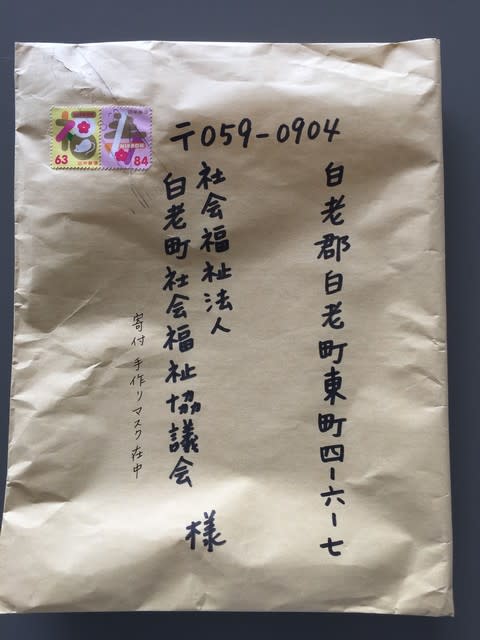 〒059-0904
白老郡白老町東町四-六-七
社会福祉法人
白老町社会福祉協議会 様
寄付 手作りマスク在中
63
84
NIPPON